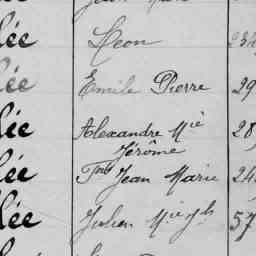 lée Léon 234
lée Emile Pierre 29
lée Alexandre Mie 28
Jérôme
lée Fois Jean Marie 24
lée Julien Mie Jh 57